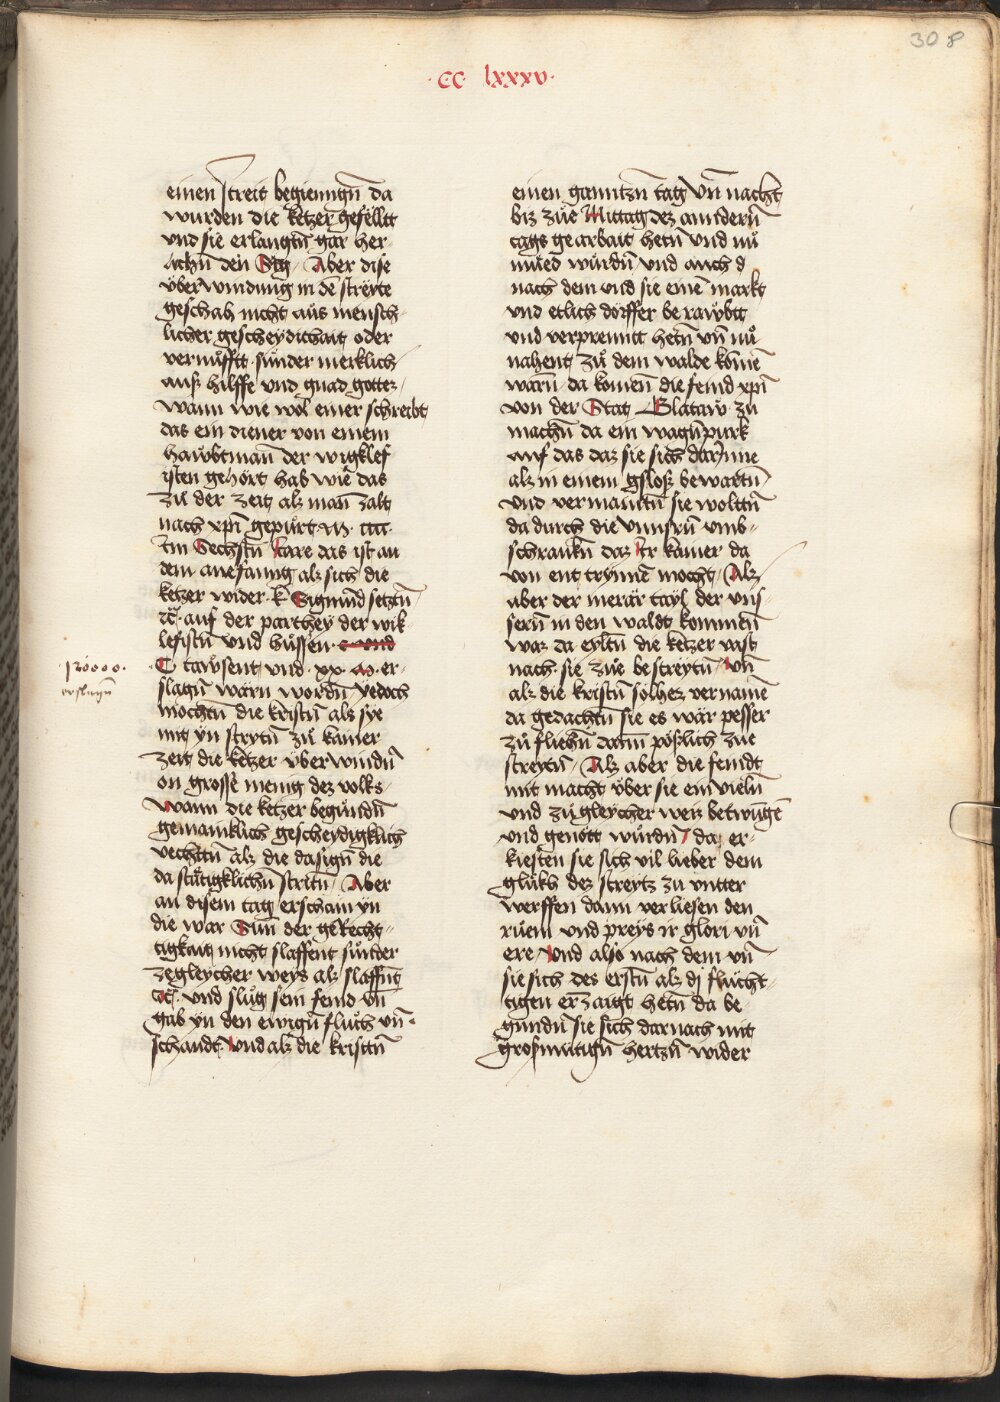 308
·CC· lxxxv·
einen streit begiennign̄ da
wurden die ketzer gefëllt
vnd sie erlangtn̄ gar her-
lichn̄ den Sig Aber dise
v̈ber windung in dē streyte
geschah nicht aus mensch-
licher gescheydichait oder
vernufftt sunder merklich
auß hilffe vnd gnad gottez
wann wie wol einer schreibt
das ein diener von einem
hawbtman der wigklef
isten gehört hab wie das
zu der zeit alz man zalt
nach xp̄i gepurt M· cccc·
im Sechstn̄ Iare das ist an
dem anefanng alz sich die
ketzer wider k̄ Sigmund setztn̄
ꝛc̄ auf der parthey der wik
lefistn̄ vnd hussen
C tawsent vnd xx m er-
slagn̄ wārn wordn̄ yedoch
mochtn̄ die kristn̄ alz sye
mit yn strytn̄ zu kainer
zeit die ketzer v̈ber windn̄
on grosse menig dez volks
wann die ketzer begundn̄
gemainklich gescheydigklich
vechttn̄ alz die dasign̄ die
da stätigklichn̄ stritn̄ Aber
an disem tag erschain yn
die war Sun̄ der gerecht-
tigkait nicht slaffent sunder
zegleycher weys alz slaffnt̄
ꝛc̄ vnd slug sein feind vn̄
gab yn den ewign̄ fluch vn̄
schandt vnd alz die kristn̄
120000·
erslagn̄
einen ganntzn̄ tag vn̄ nacht
biz zue Mittag dez anndern̄
tags gearbait hetn̄ vnd nu
mued wurdn̄ vnd auch d
nach dem vnd sie einē markt
vnd etlich dörffer berawbtt
vnd verprennt hetn̄ vn̄ nu
nahent zu dem walde komē
warn̄ da komen̄ die feind xp̄i
von der Stat Glataw zu
machn̄ da ein wagn̄purk
auf das daz sie sich darjnne
alz in einem gsloß bewartn̄
vnd vermaintn̄ sie woltn̄
da durch die vnnsrn̄ vmb-
schrankn̄ daz Ir kainer da
von entrynnē mocht Alz
aber der merär tayl der vns
sern̄ in den waldt kommen̄
war da eyltn̄ die ketzer vast
nach sie zue bestreytn̄ vn̄
alz die kristn̄ solhez vernamē
da gedachtn̄ sie es wär pesser
zu fliehn̄ dann pößlich zue
streytn̄ Alz aber die feindt
mit macht v̈ber sie ein vieln̄
vnd zu gleycher weiz betwūgē
vnd genott wurdn̄ da er-
kiesten sie sich vil lieber dem
glükh dez streytz zu vntter
werffen dann verliesen den
ruem vnd preys ir glori vn̄
ere vnd also nach dem vn̄
sie sich des erstn̄ alz dj flücht-
tigen erzaigt hetn̄ da be-
gundn̄ sie sich darnach mit
großmütign̄ hertzn̄ wider